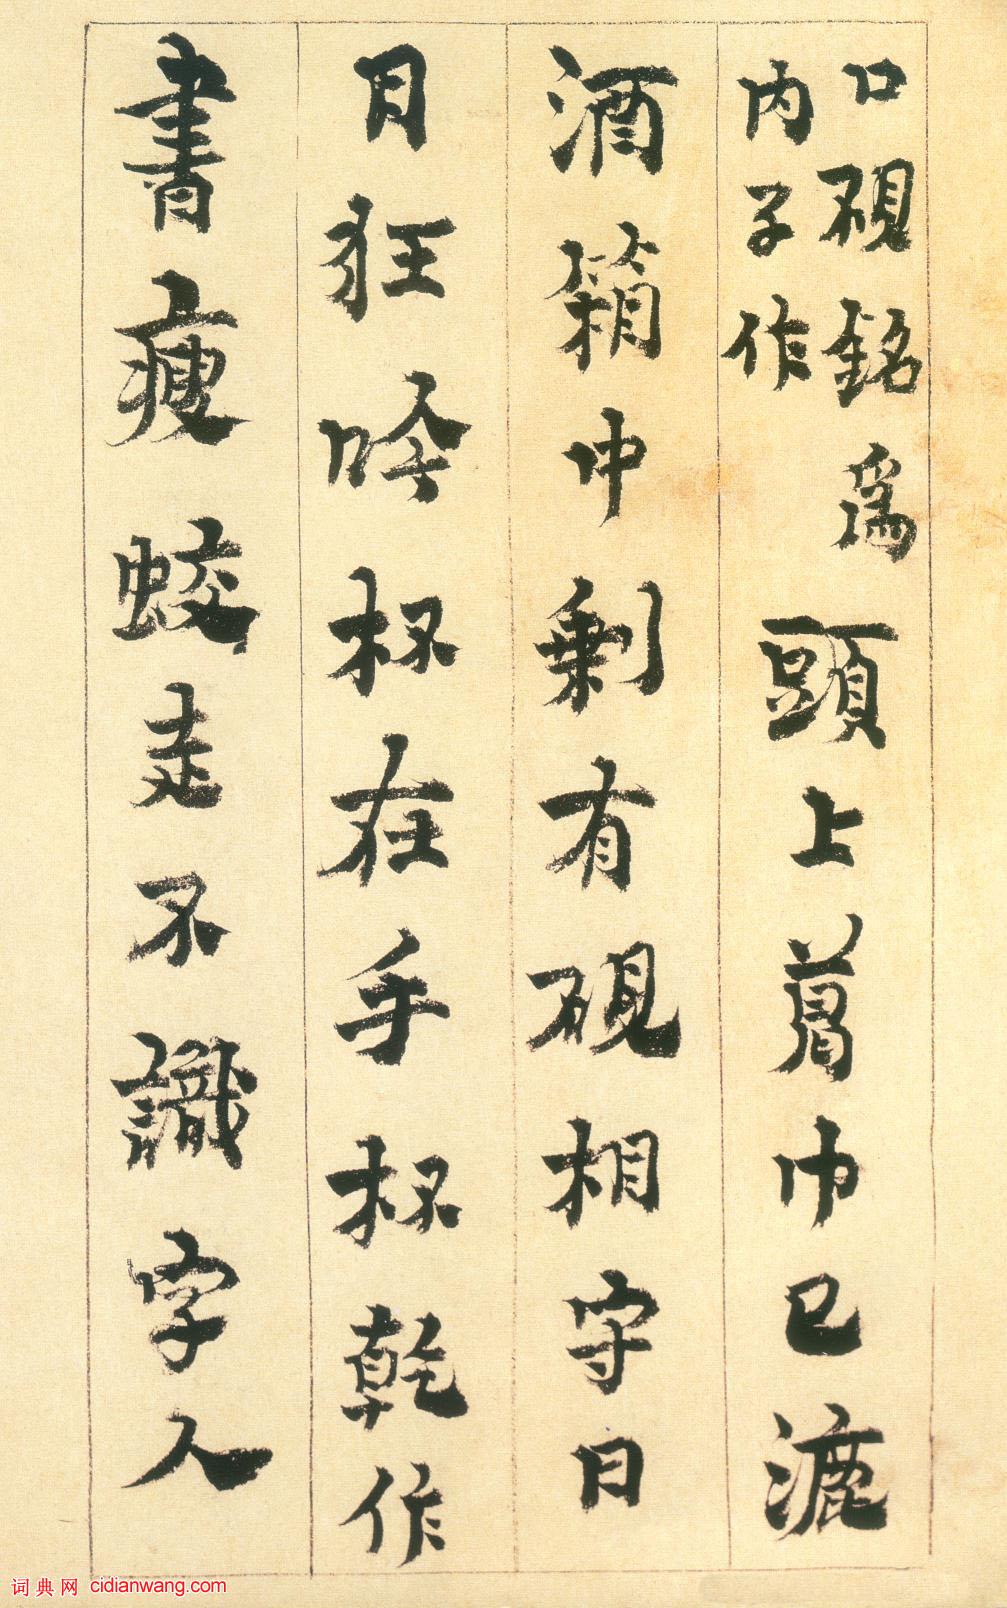 口硯銘爲
内子作
頭上葛巾已漉
酒箱中剩有硯相守日
日狂吟杯在手杯乾作
書瘦蛟走不識字人
词典网 cidianwang.com